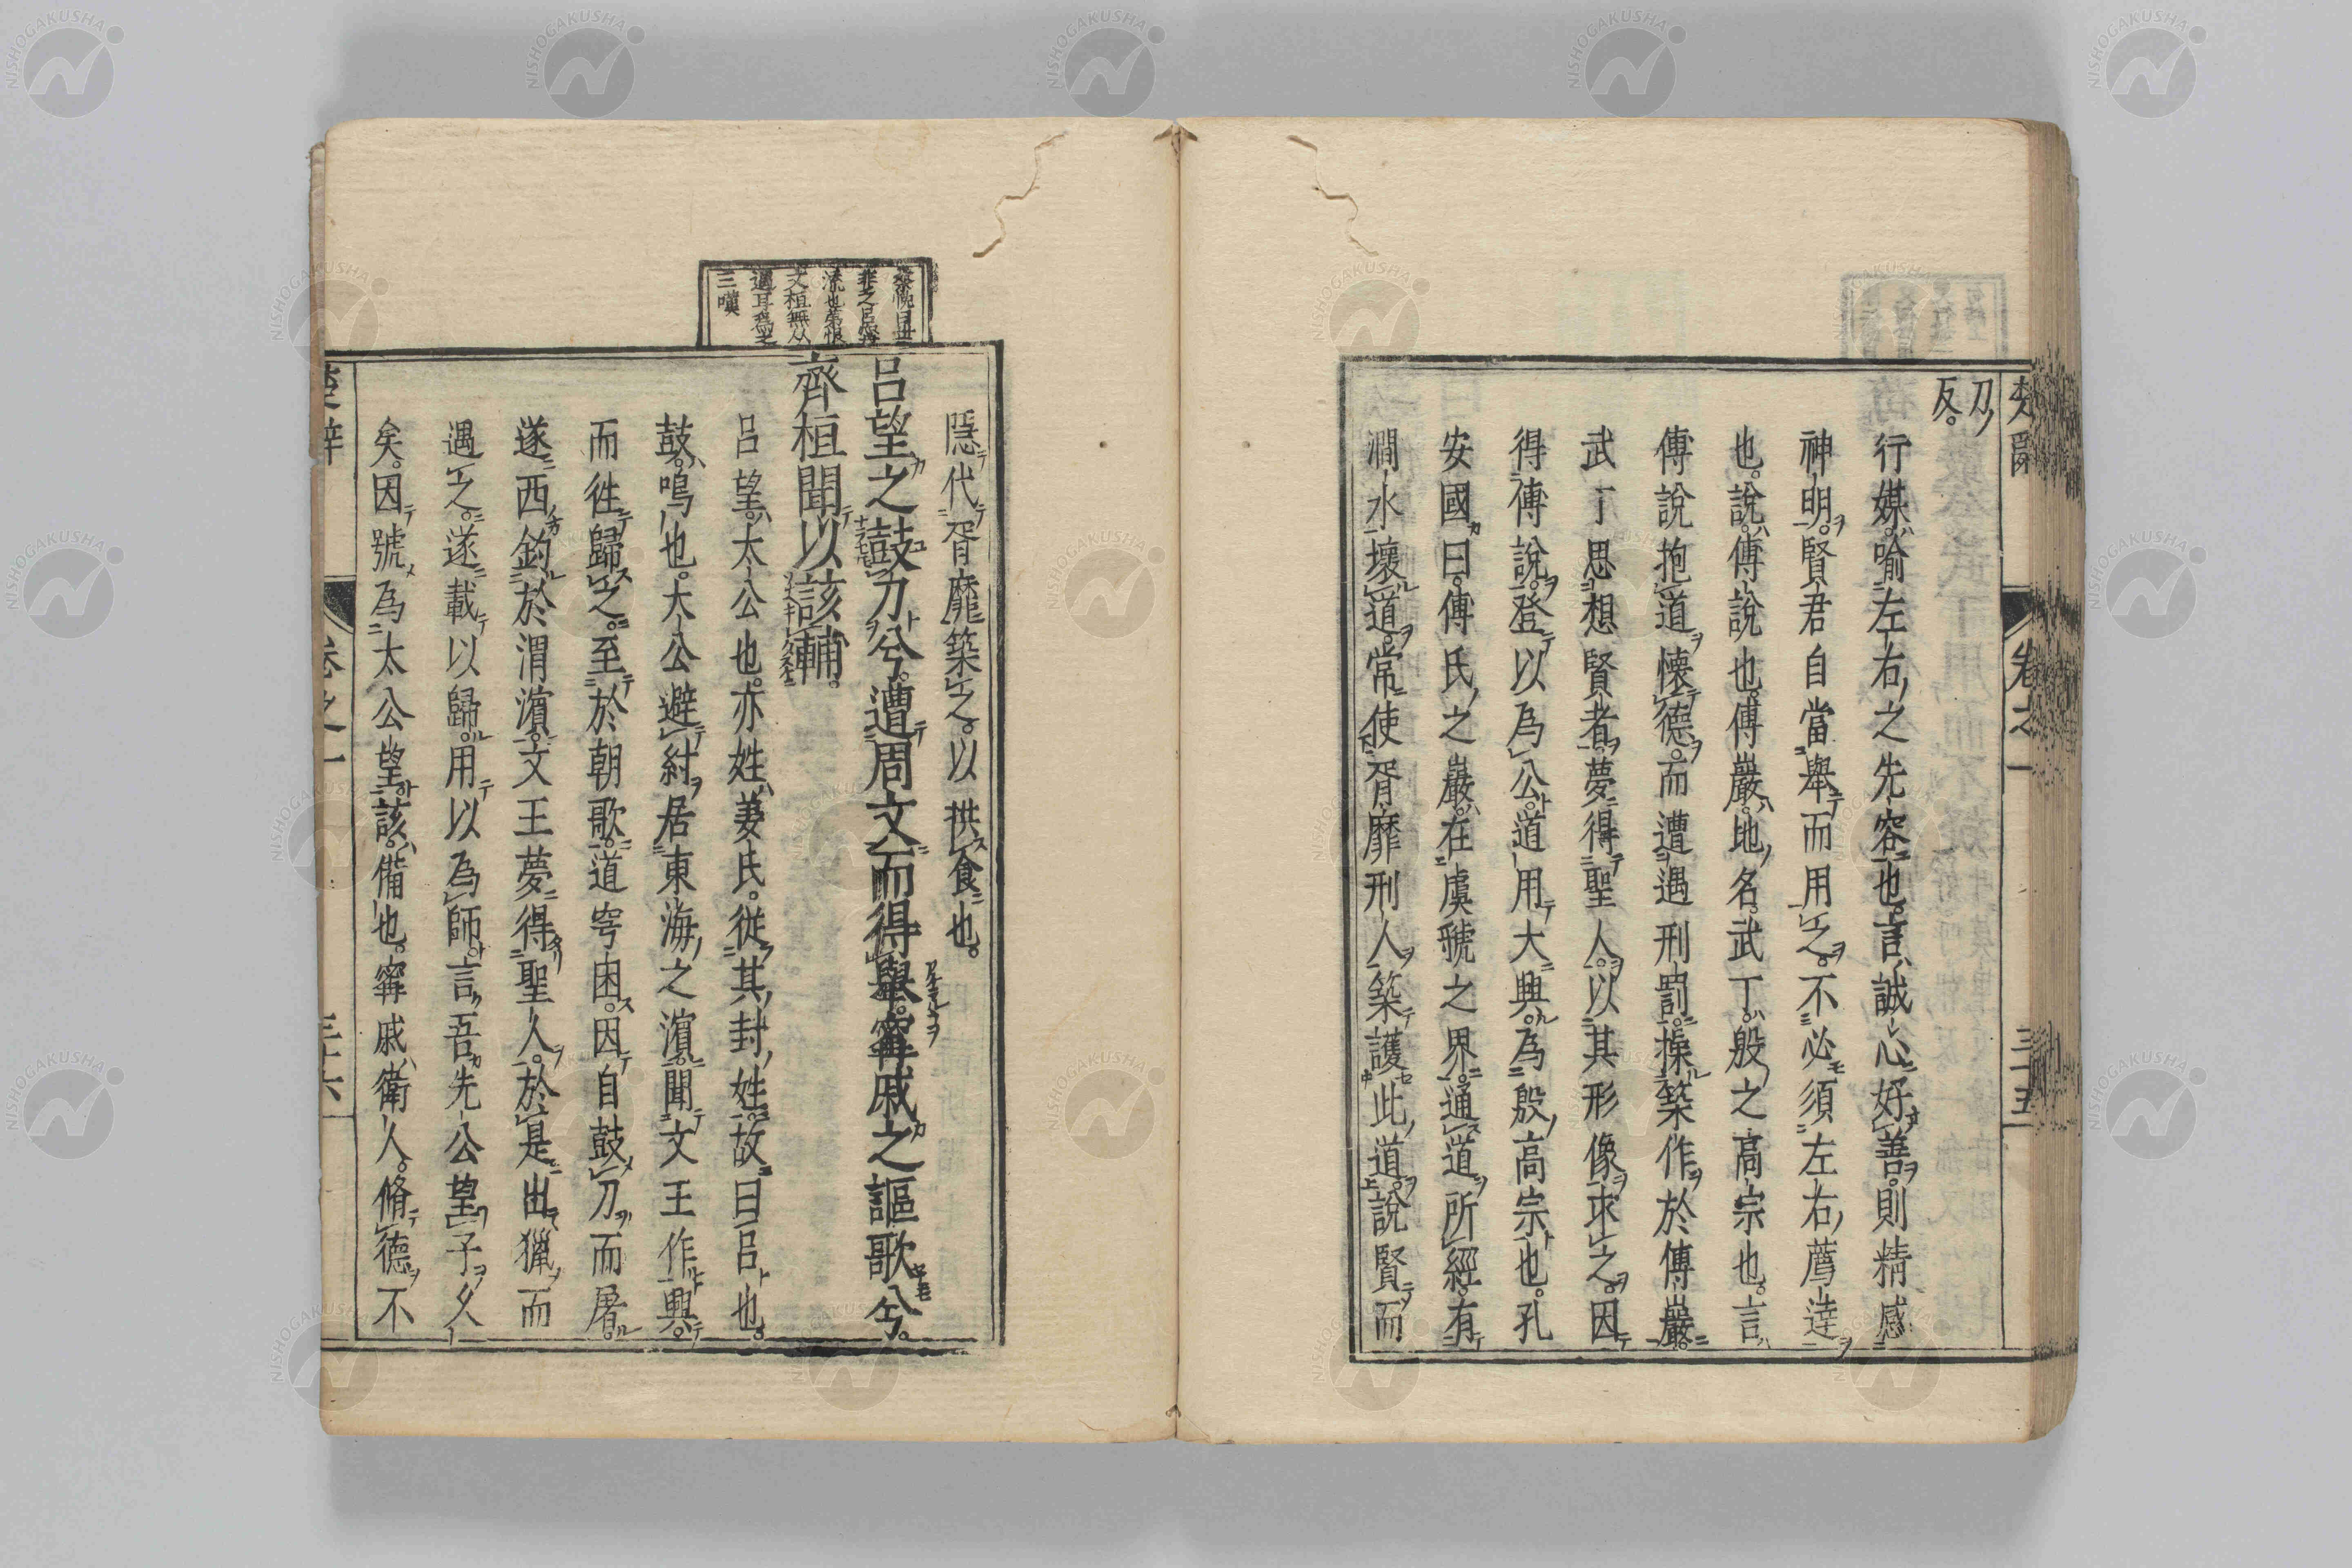 刀
反。
行媒。喻左右之先容也。言誠心好善。則精感
神明。賢君自當舉而用之。不必須左右薦達
也。說。傅說也。傅巖。地名。武丁。殷之高宗也。言
傅說抱道懷德。而遭遇刑罰。操築作於傅巖。
武丁思想賢者。夢得聖人。以其形像求之。因
得傅說。登以為公。道用大興。為殷高宗也。孔
安國曰。傅氏之巖。在虞虢之界。通道所經。有
澗水壞道。常使胥靡刑人築護此道。說賢而
隱代胥靡築之。以拱食也。
呂望之鼓刀兮。遭周文而得舉。甯戚之謳歌兮。
齊桓聞以該輔。
呂望。太公也。亦姓姜氏。從其封姓。故曰呂也。
鼓。鳴也。太公避紂居東海之濱。聞文王作興。
而往歸之。至於朝歌。道窮困。因自鼓刀而屠。
遂西釣於渭濱。文王夢得聖人。於是出獵而
遇之。遂載以歸。用以為師。言吾先公望子久
矣。因號為太公望。該。備也。甯戚。衛人。脩德不
流也第恨
文桓無从
遇耳為之
三嘆
卷之一
三十五
卷之一
三十六
NISHOGAKUSHA